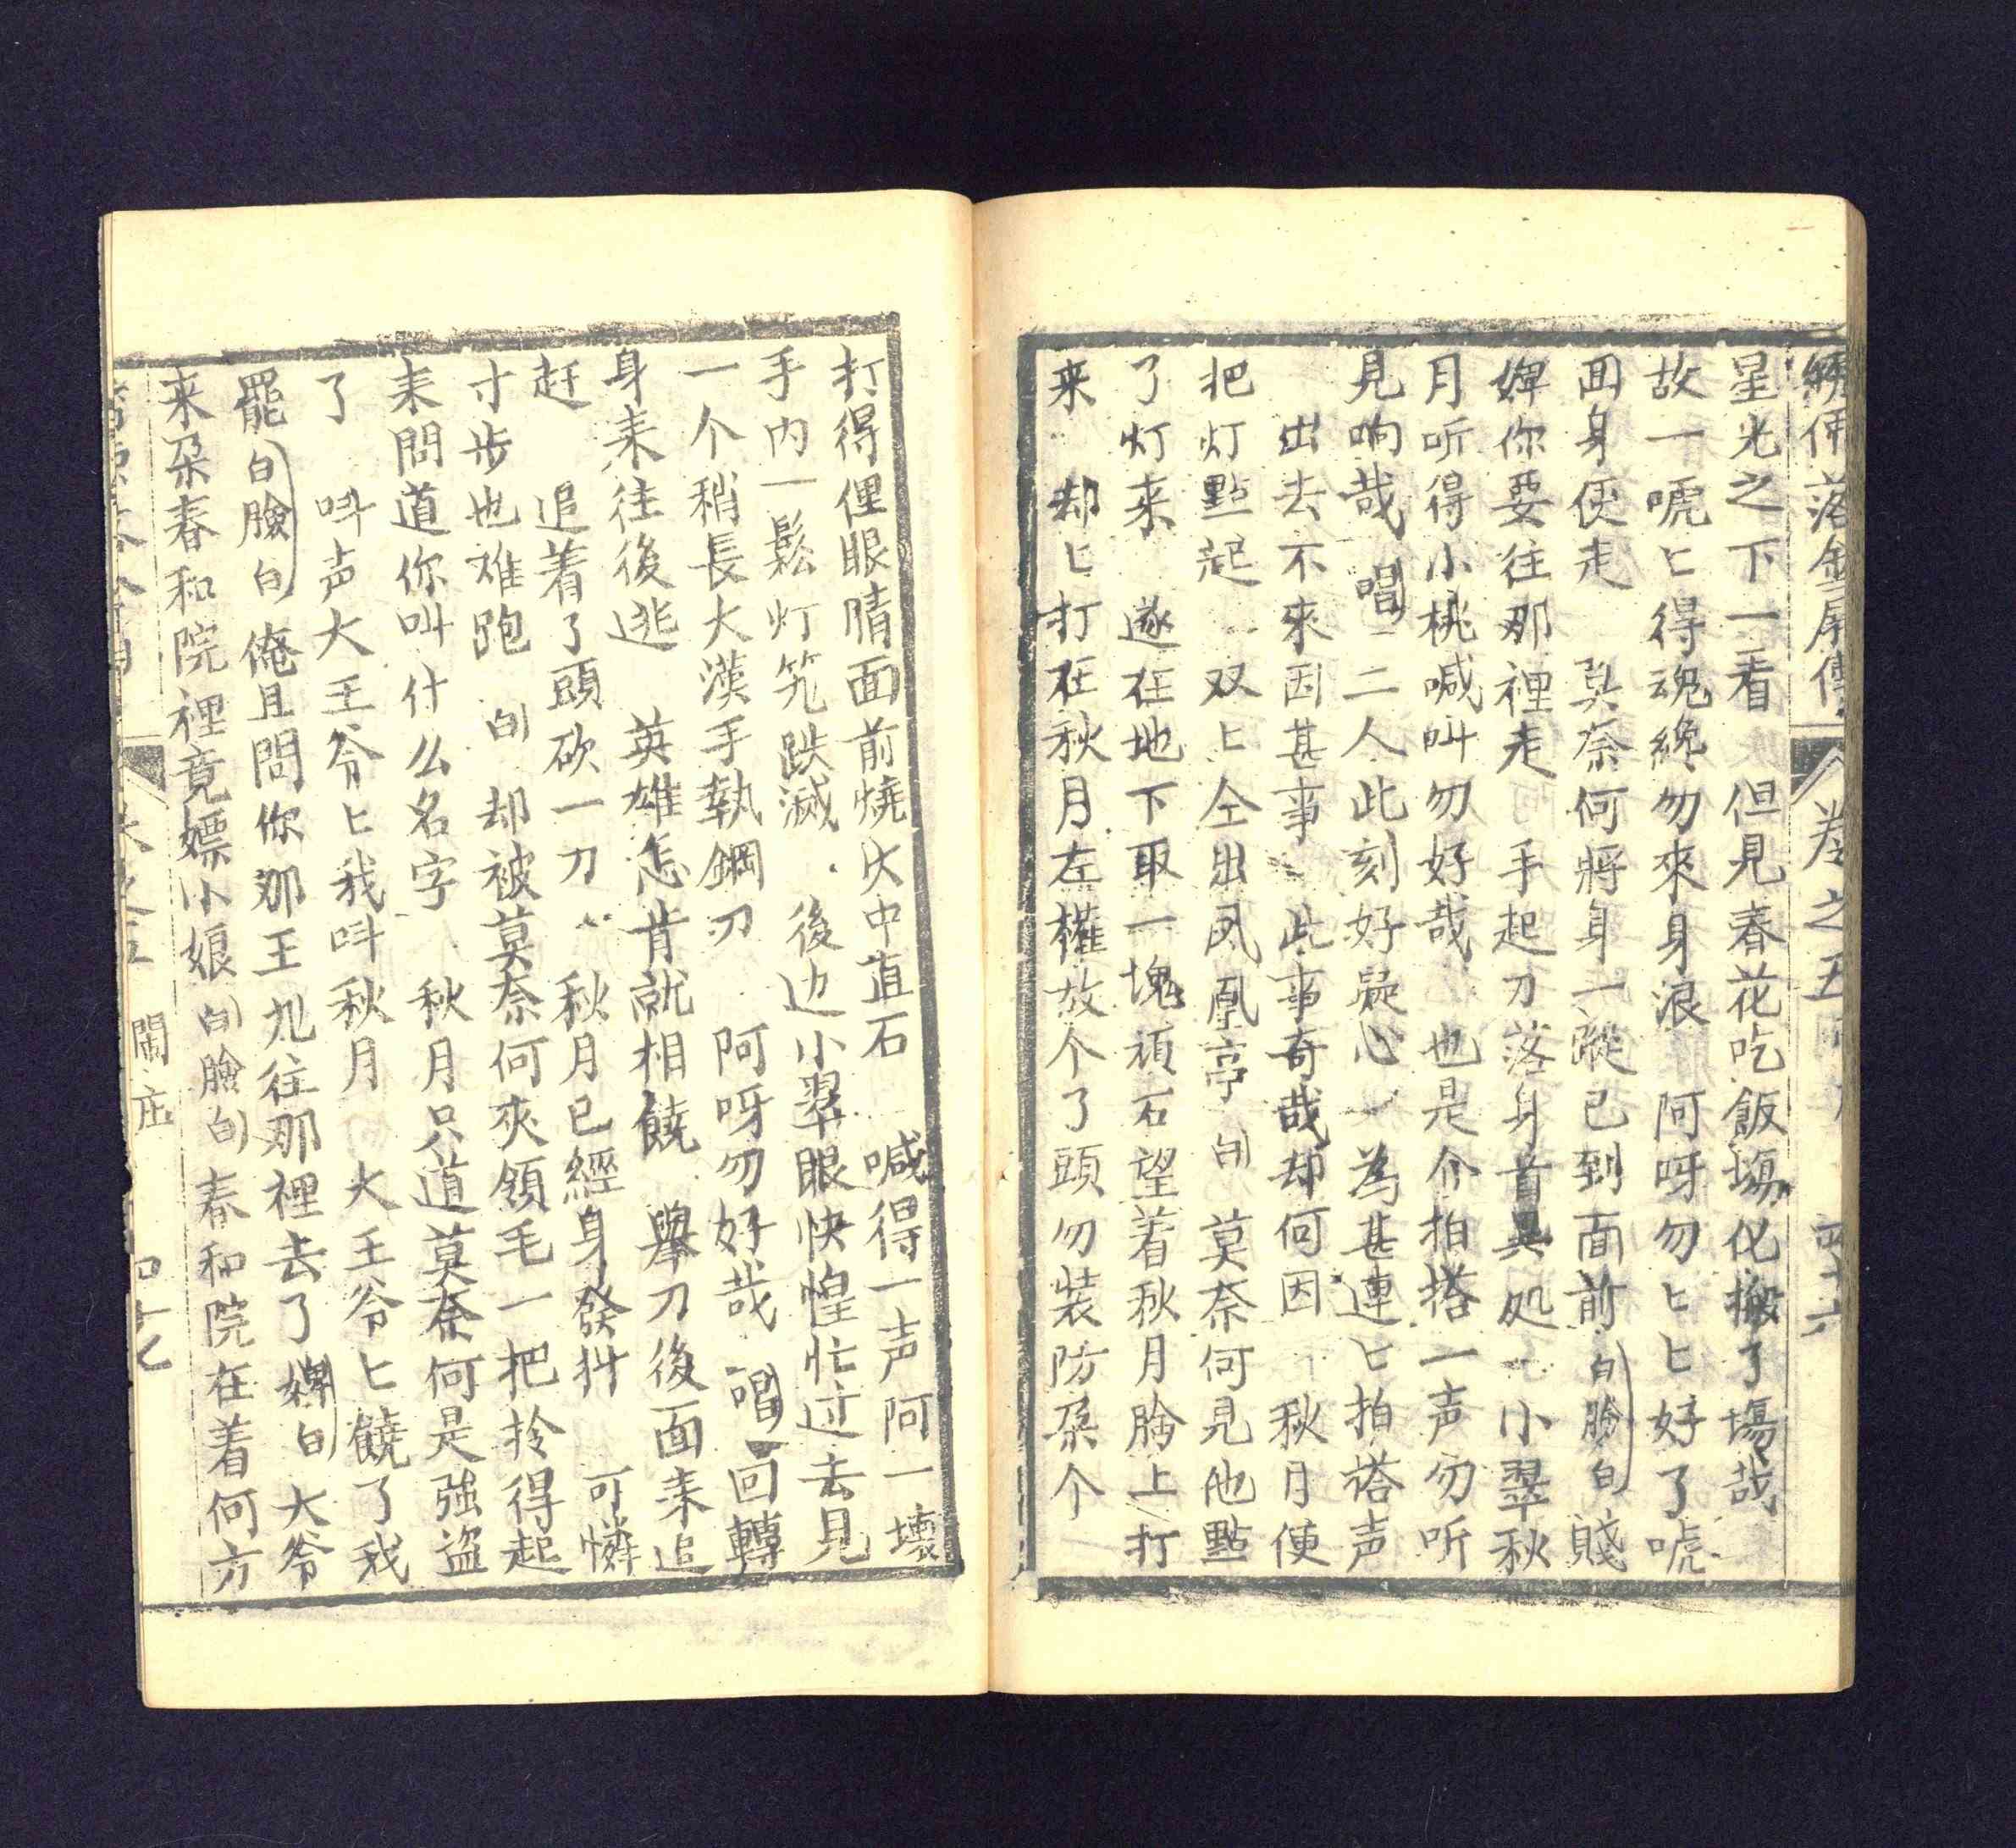 繡像落金扇傳 卷之五 四十六
星光之下一看 但見春花吃飯塲化搬了塲哉
故一唬匕得魂纔勿來身浪 阿呀勿匕匕好了唬
回身便走 莫奈何將身一蹤已到面前 白臉白 賤
婢你要往那裡走 手起刀落身首異処 小翠秋
月听得小桃喊叫勿好哉 也是个拍搭一声勿听
見响哉 唱 二人此刻好疑心 為甚連匕拍搭声
出去不來因甚事 此事奇哉却何因 秋月便
把灯點起 双匕仝出凤凰亭 白 莫奈何見他點
了灯来 遂在地下取一塊頑石望着秋月臉上打
来 却匕打在秋月左權故个了頭勿裝防朶个
打得俚眼睛面前燒火中直石 喊得一声阿一壞
手内一鬆灯笼跌滅 後边小翠眼快惶忙过去見
一个稍長大漢手執鋼刀 阿呀勿好哉 唱 回轉
身来往後逃 英雄怎肯就相饒 舉刀後面来追
赶 追着了頭砍一刀 秋月已經身發抖 可憐
寸步也难跑 白 却被莫奈何夾領毛一把拎得起
来問道你叫什么名字 秋月只道莫奈何是強盗
了 呌声大王爷匕我呌秋月 大王爷匕饒了我
罷 白臉白 俺且問你那王九往那裡去了 婢白 大爷
来朶春和院裡竟嫖小娘 白臉白 春和院在着何方
閙庄 四十七